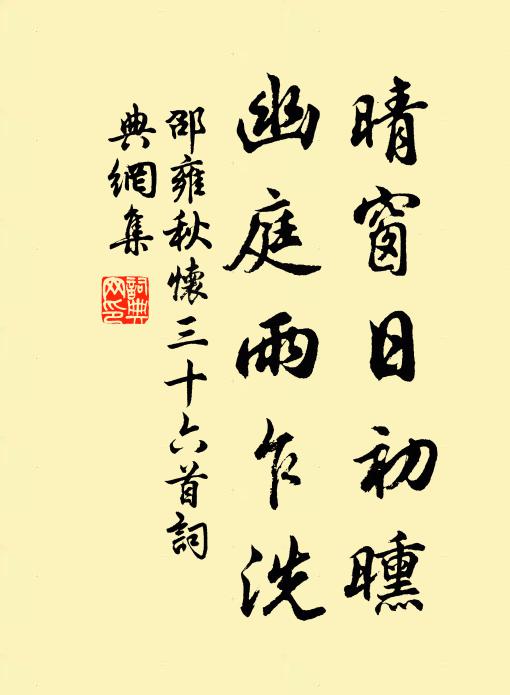 晴窗日初曛
幽庭雨乍洗
邵雍秋懷三十六首詞
典網集
詞典網印